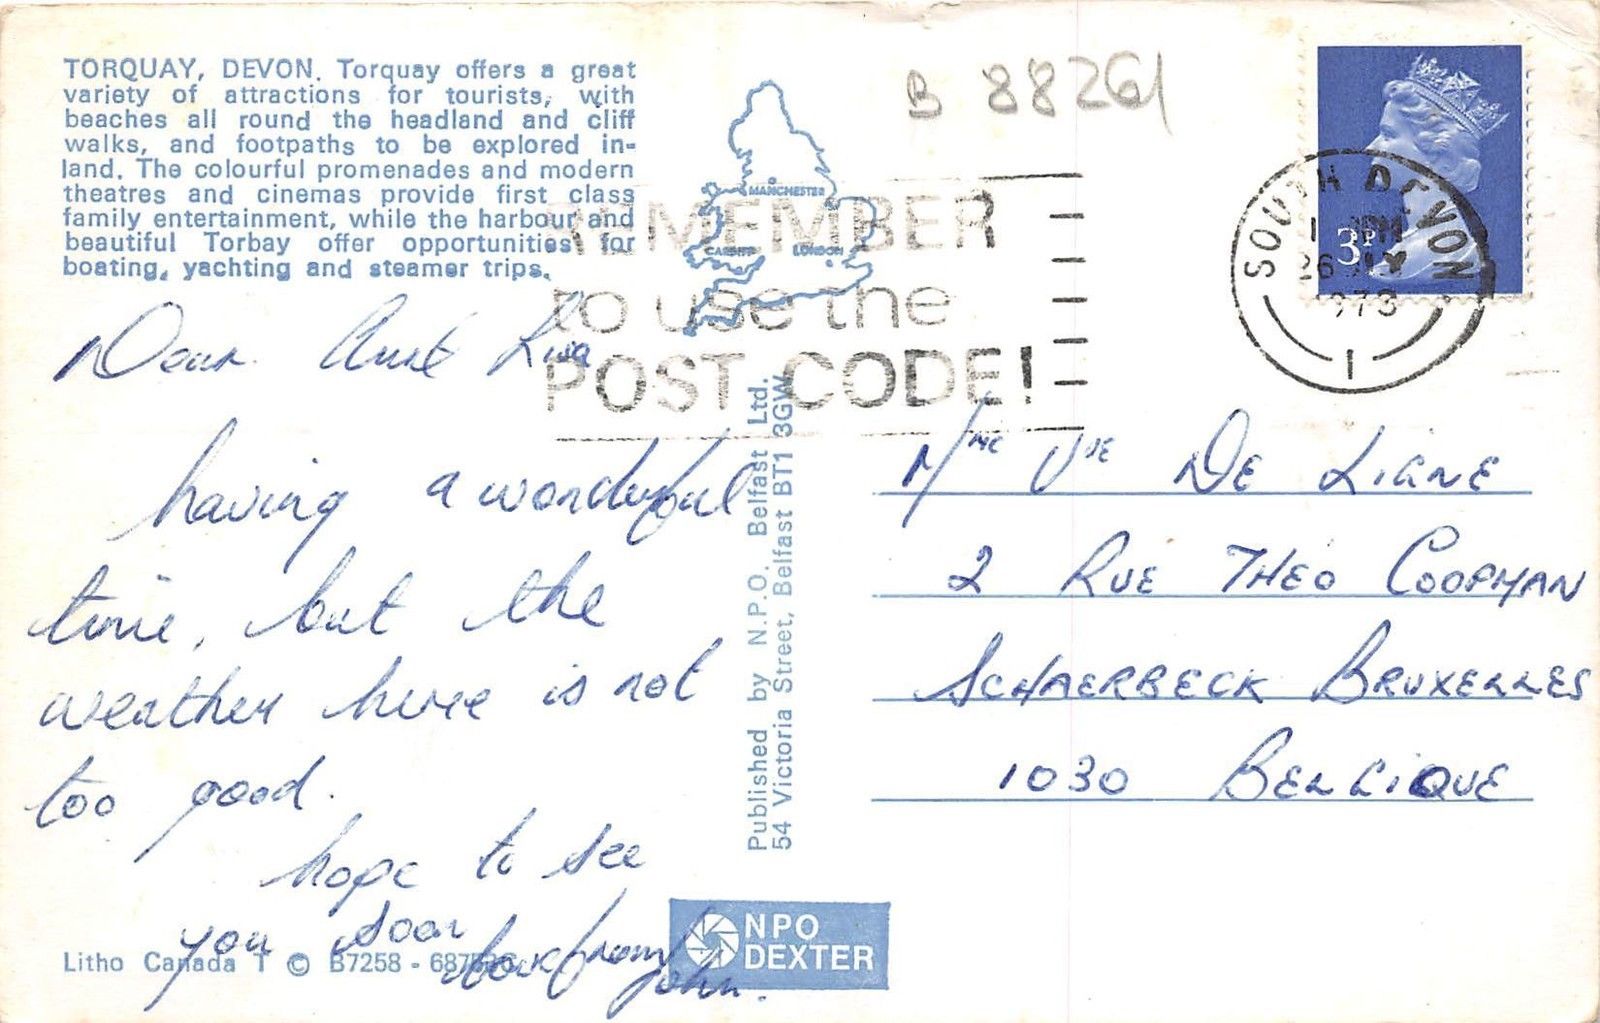 TORQUAY, DEVON. Torquay offers a great
variety of attractions for tourists, with
beaches all round the headland and cliff
walks, and footpaths to be explored in-
land. The colourful promenades and modern
theatres and cinemas provide first class
family entertainment, while the harbour and
beautiful Torbay offer opportunities for
boating, yachting and steamer trips.
Dear Aunt
having a wonderful
time, but the
weather here is not
too good.
hope to see
you soon
love from
John.
Litho Canada T © B7258 -
Published by N.P.O. Belfast Ltd.
54 Victoria Street, Belfast BT1 3GW
NPO
DEXTER
MANCHESTER
CARDIFF
LONDON
B 88261
REMEMBER
to use the
POST CODE!
3P
SOUTH DEVON
PM
26
1973
1
Mme Vve DE LIGNE
2 RUE THEO COOPMAN
SCHAERBECK BRUXELLES
1030 BELGIQUE